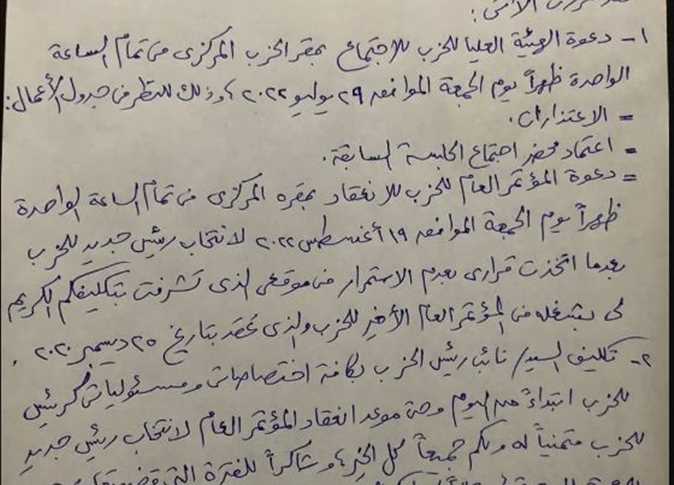 فقد قررت الآتى:
١- دعوة الهيئة العليا للحزب للاجتماع بمقر الحزب المركزى فى تمام الساعة
الواحدة ظهراً يوم الجمعة الموافق ٢٩ يوليو ٢٠٢٢، وذلك للنظر فى جدول الأعمال:
= الاعتذارات.
= اعتماد محضر اجتماع الجلسة السابقة.
= دعوة المؤتمر العام للحزب للانعقاد بمقره المركزى فى تمام الساعة الواحدة
ظهراً يوم الجمعة الموافق ١٩ أغسطس ٢٠٢٢ لانتخاب رئيس جديد للحزب
بعدما اتخذت قرارى بعدم الاستمرار فى موقعى الذى تشرفت بتكليفكم الكريم
لى بشغله فى المؤتمر العام الأخير للحزب والذى عقد بتاريخ ٢٥ ديسمبر ٢٠٢٠.
٢- تكليف السيد/ نائب رئيس الحزب بكافة اختصاصاتى ومسئولياتى كرئيس
للحزب ابتداءً من اليوم وحتى موعد انعقاد المؤتمر العام لانتخاب رئيس جديد
للحزب متمنياً له ولكم جميعاً كل الخير، وشاكراً للفترة التى